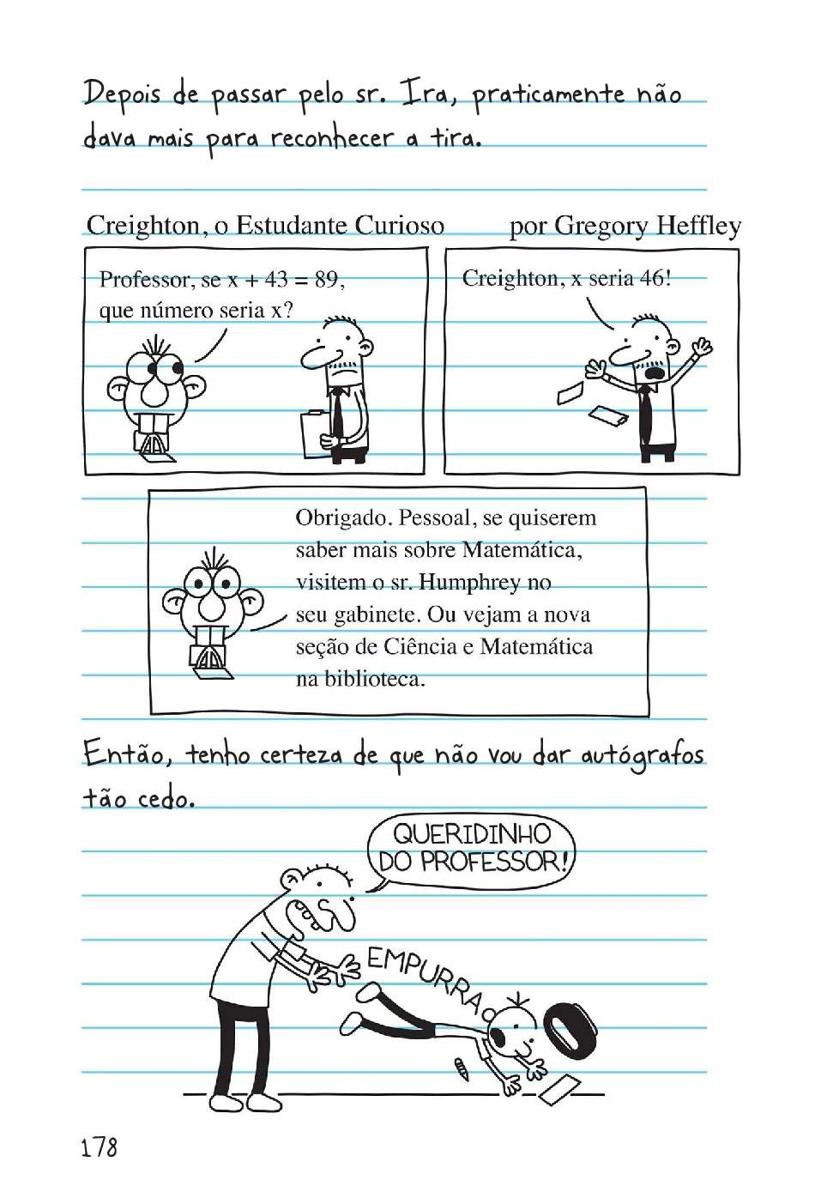 Depois de passar pelo sr. Ira, praticamente não
dava mais para reconhecer a tira.
Creighton, o Estudante Curioso
por Gregory Heffley
Professor, se x + 43 = 89,
que número seria x?
Creighton, x seria 46!
Obrigado. Pessoal, se quiserem
saber mais sobre Matemática,
visitem o sr. Humphrey no
seu gabinete. Ou vejam a nova
seção de Ciência e Matemática
na biblioteca.
Então, tenho certeza de que não vou dar autógrafos
tão cedo.
QUERIDINHO
DO PROFESSOR!
EMPURRA
178